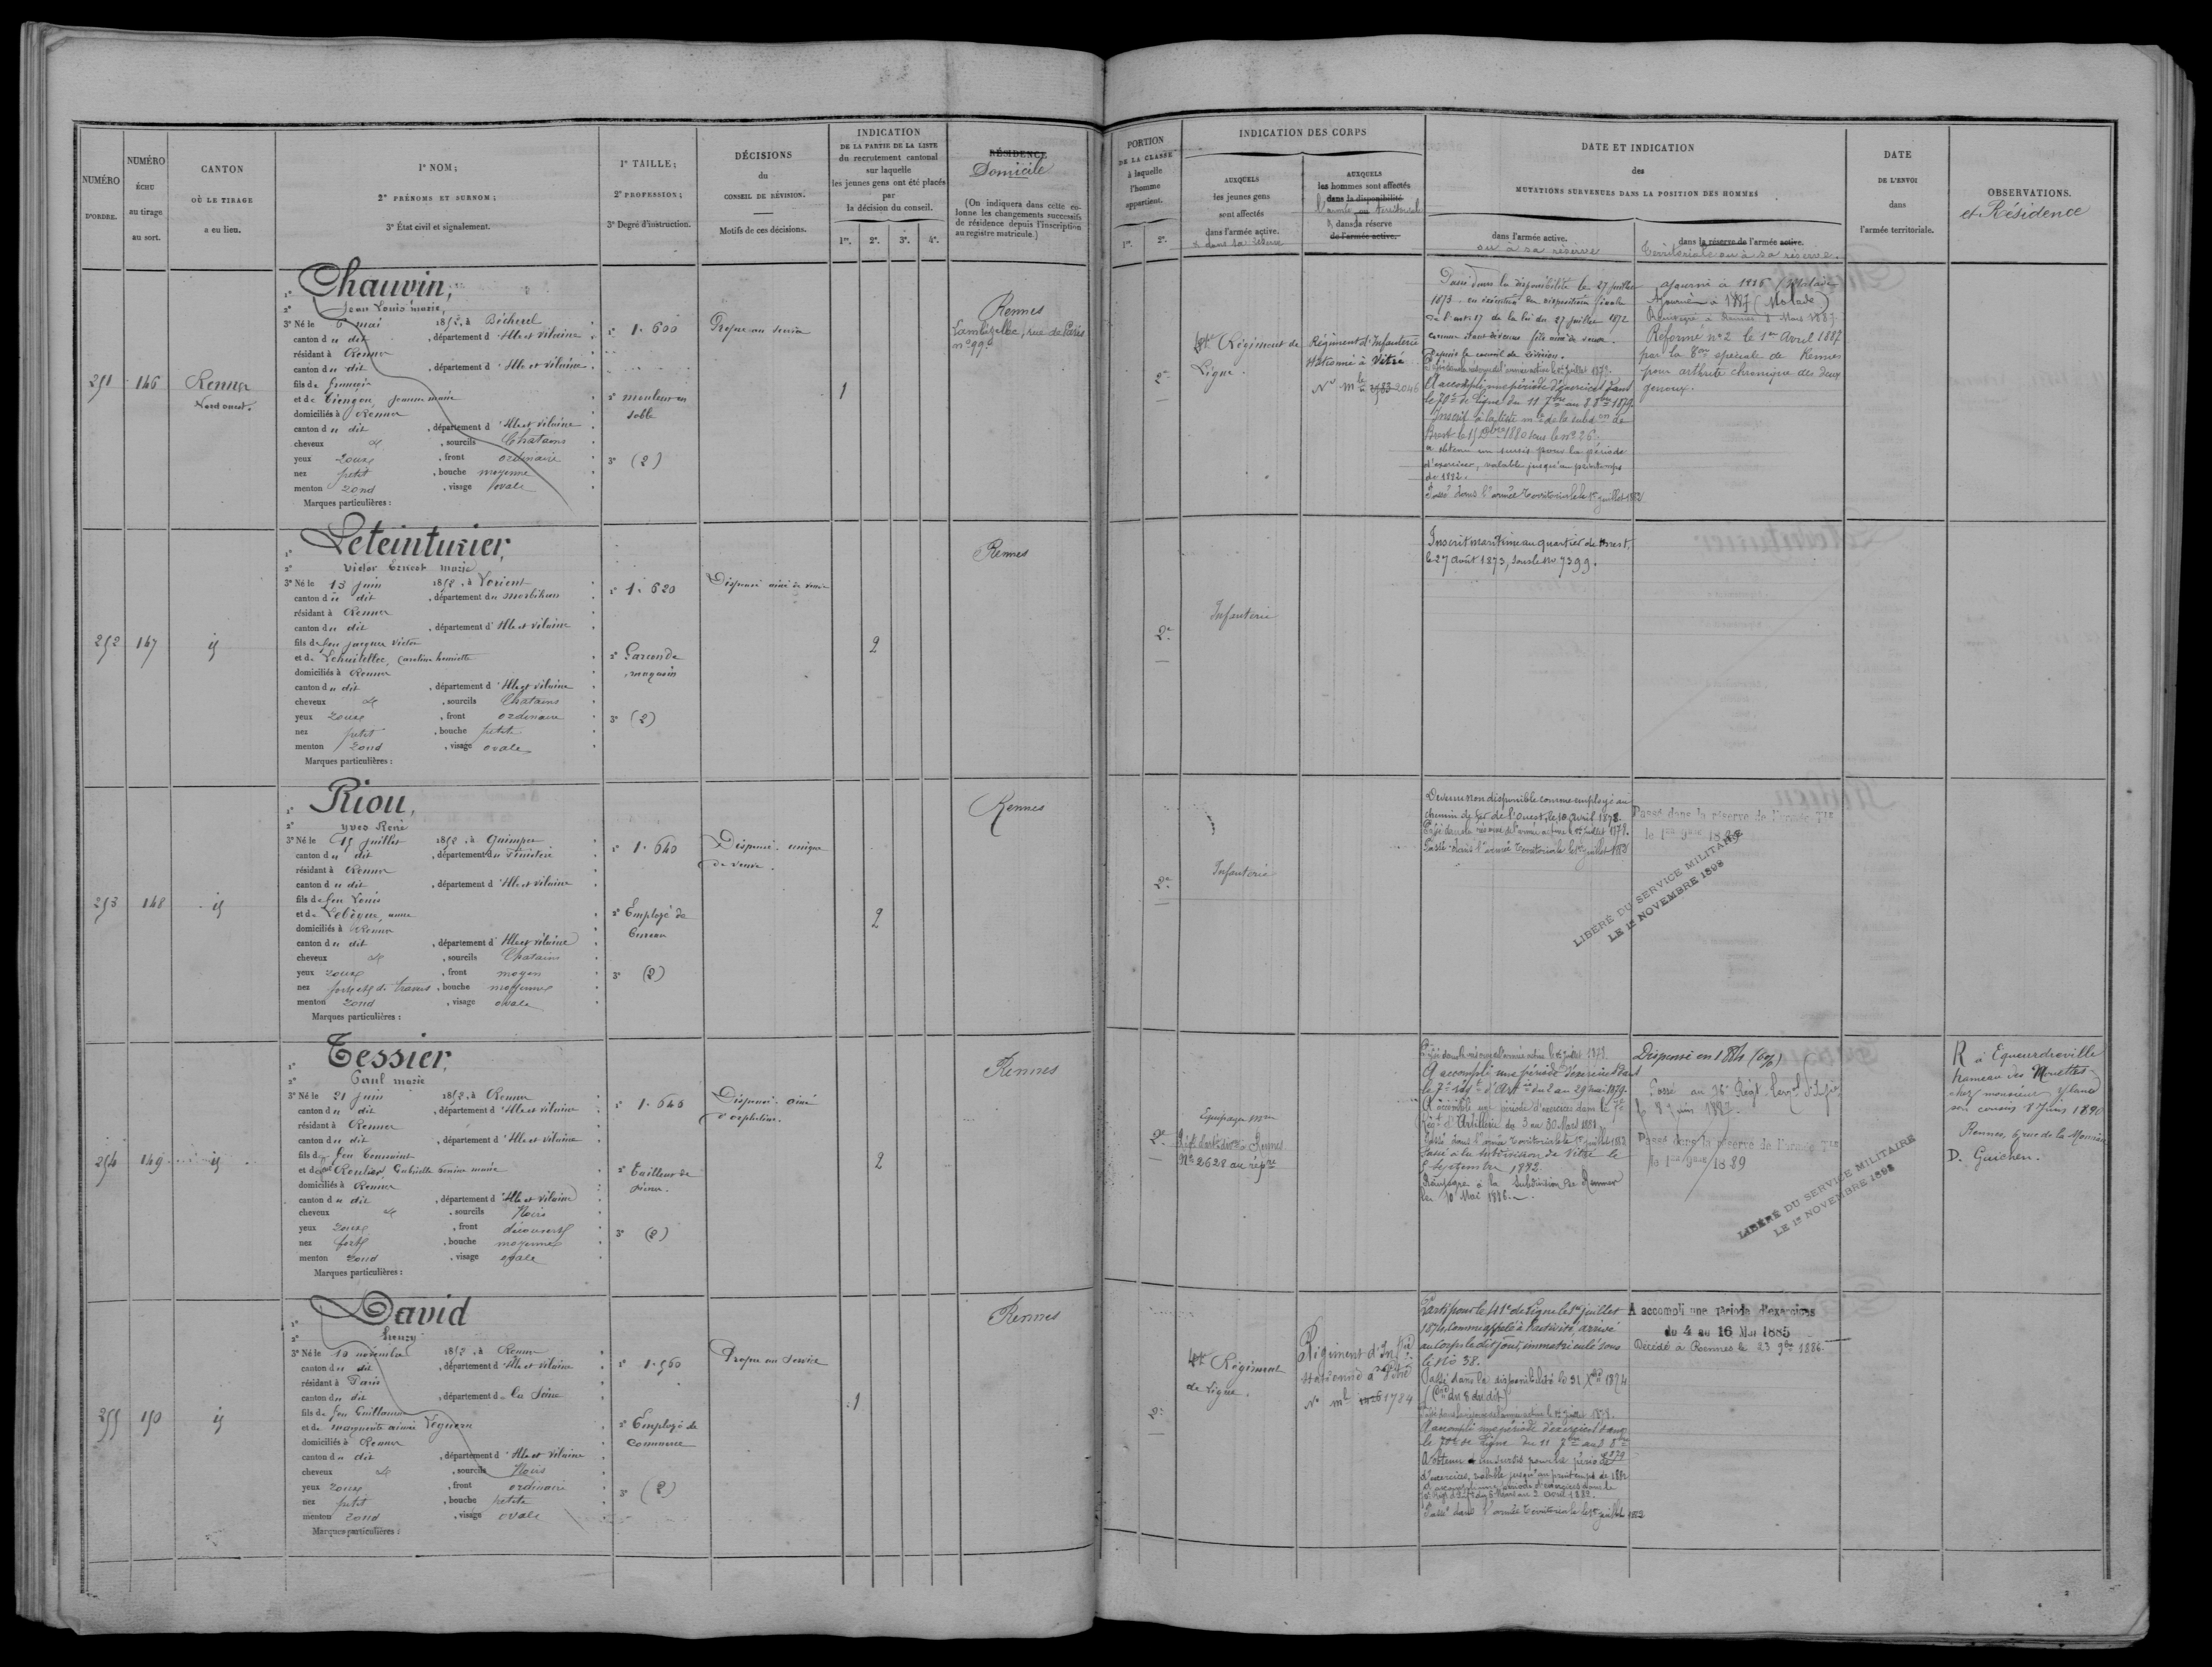 NUMÉRO
D'ORDRE.
NUMÉRO
ÉCHU
au tirage
au sort.
CANTON
OÙ LE TIRAGE
a eu lieu.
1° NOM;
2° PRÉNOMS ET SURNOM;
3° État civil et signalement.
1° TAILLE;
2° PROFESSION;
3° Degré d'instruction.
DÉCISIONS
du
CONSEIL DE RÉVISION.
Motifs de ces décisions.
INDICATION
DE LA PARTIE DE LA LISTE
du recrutement cantonal
sur laquelle
les jeunes gens ont été placés
par
la décision du conseil.
1re. 2e. 3e. 4e.
RÉSIDENCE
Domicile
(On indiquera dans cette colonne les changements successifs de résidence depuis l'inscription au registre matricule.)
PORTION
DE LA CLASSE
à laquelle
l'homme
appartient.
1re. 2e.
INDICATION DES CORPS
AUXQUELS
les jeunes gens
sont affectés
dans l'armée active.
& dans sa réserve
AUXQUELS
les hommes sont affectés
dans la disponibilité
l'armée territoriale
dans la réserve
de l'armée active.
DATE ET INDICATION
des
MUTATIONS SURVENUES DANS LA POSITION DES HOMMES
dans l'armée active.
ou à sa réserve
dans la réserve de l'armée active.
territoriale ou à sa réserve.
DATE
DE L'ENVOI
dans
l'armée territoriale.
OBSERVATIONS.
et Résidence
251
146
Rennes
Nord ouest.
1° Chauvin,
2° Jean Louis marie,
3° Né le 6 mai 1852, à Bécherel
canton du dit, département d'Ille et vilaine
résidant à Rennes
canton du dit, département d'Ille et vilaine
fils de
et de jeanne marie
domiciliés à Rennes
canton du dit, département d'Ille et vilaine
cheveux et, sourcils Chatains
yeux roux, front ordinaire
nez petit, bouche moyenne
menton rond, visage ovale
Marques particulières :
1° 1. 600
2° mouleur en
sable
3° (2)
Propre au service
1
Rennes
Lambézellec, rue de Paris
n° 99
2e
Régiment de
Ligne.
Régiment d'Infanterie
stationné à Vitré
No mle 2046
Passé dans la disponibilité le 27 juillet
1873 en exécution des dispositions
de l'art. 17 de la loi du 27 juillet 1872
comme étant devenu fils aîné de veuve.
depuis le conseil de révision.
A accompli une période d'exercices dans
le 70e de ligne du 11 7bre au 8 8bre 1879
Inscrit à la liste mle de la subdon de
Brest le 15 1880 sous le no 26.
a obtenu un sursis pour la période
d'exercices, valable jusqu'au printemps
de 1882.
Passé dans l'armée territoriale le 1er juillet 1882
Ajourné à 1886 (Malade)
Ajourné à 1887 (Malade)
Réformé no 2 le 1er Avril 1887
par la Con spéciale de Rennes
pour arthrite chronique des deux
genoux.
252
147
id
1° Leteinturier,
2° Victor Ernest marie
3° Né le 13 juin 1852, à Lorient
canton du dit, département du morbihan
résidant à Rennes
canton du dit, département d'Ille et vilaine
fils de feu jacques victor
et de Caroline henriette
domiciliés à Rennes
canton du dit, département d'Ille et vilaine
cheveux et, sourcils Chatains
yeux roux, front ordinaire
nez petit, bouche petite
menton rond, visage ovale
Marques particulières :
1° 1. 620
2° Garçon de
magasin
3° (2)
Dispensé aîné de veuve
2
Rennes
2e
Infanterie
Inscrit maritime au quartier de Brest,
le 27 août 1873, sous le no 7399.
253
148
id
1° Riou,
2° yves René
3° Né le 15 juillet 1852, à Quimper
canton du dit, département du finistère
résidant à Rennes
canton du dit, département d'Ille et vilaine
fils de feu Louis
et de Lebègue, anne
domiciliés à Rennes
canton du dit, département d'Ille et vilaine
cheveux et, sourcils Chatains
yeux roux, front moyen
nez fort et de travers, bouche moyenne
menton rond, visage ovale
Marques particulières :
1° 1. 640
2° Employé de
bureau
3° (2)
Dispensé. unique
de veuve.
2
Rennes
2e
Infanterie
Devenu non disponible comme employé au
chemin de fer de l'Ouest, le 10 Avril 1878.
Passé dans la réserve de l'armée active le 1er juillet 1878.
Passé dans l'armée territoriale le 1er juillet 1883
Passé dans la réserve de l'armée Tle
le 1er 9bre 1889
LIBÉRÉ DU SERVICE MILITAIRE
LE 1er NOVEMBRE 1898
254
149
id
1° Tessier,
2° Paul marie
3° Né le 21 juin 1852, à Rennes
canton du dit, département d'Ille et vilaine
résidant à Rennes
canton du dit, département d'Ille et vilaine
fils de feu Toussaint
et de feue Gabrielle marie
domiciliés à Rennes
canton du dit, département d'Ille et vilaine
cheveux et, sourcils Noirs
yeux roux, front découvert
nez fort, bouche moyenne
menton rond, visage ovale
Marques particulières :
1° 1. 646
2° Tailleur de
pierres.
3° (2)
Dispensé. aîné
d'orphelins.
2
Rennes
2e
Rennes
No 2628 au répre
A accompli une période d'exercices dans
le 7e régt d'Artie du 2 au 29 mai 1879.
A accompli une période d'exercices dans le 7e
Régt d'Artillerie du 3 au 30 Mars 1881.
Passé dans l'armée territoriale le 1er juillet 1882
Passé à la subdivision de Vitré le
septembre 1882.
à la subdivision de Rennes
le 10 Mai 1886.
Dispensé en 1884
Passé dans la réserve de l'armée Tle
le 1er 9bre 1889
LIBÉRÉ DU SERVICE MILITAIRE
LE 1er NOVEMBRE 1898
R à Equeurdreville
hameau des Mouettes
chez monsieur
son cousin 8 juin 1890
Rennes, 6 rue de la
D. Guichen.
255
150
id
1° David
2° henry
3° Né le 10 novembre 1852, à Rennes
canton du dit, département d'Ille et vilaine
résidant à Paris
canton du dit, département de la Seine
fils de feu Guillaume
et de marguerite aimée Léguern
domiciliés à Rennes
canton du dit, département d'Ille et vilaine
cheveux et, sourcils Noirs
yeux roux, front ordinaire
nez petit, bouche petite
menton rond, visage ovale
Marques particulières :
1° 1. 560
2° Employé de
Commerce
3° (2)
Propre au service
1
Rennes
2e
41e Régiment
de Ligne.
Régiment d'Infrie
stationné à Vitré
No mle 1784
Parti pour le 41e de Ligne le 1er juillet
1874, comme appelé à l'activité, arrivé
au corps le dit jour, immatriculé sous
le No 38.
Passé dans la disponibilité le 31 Xbre 1874
A accompli une période d'exercices dans
le 70e de Ligne du 11 7bre au 8 8bre
1879
A obtenu un sursis pour la période
d'exercices, valable jusqu'au printemps de 1882
A accompli une période d'exercices dans le
Passé dans l'armée territoriale le 1er juillet 1882
A accompli une période d'exercices
du 4 au 16 Mai 1885
Décédé à Rennes le 23 9bre 1886.